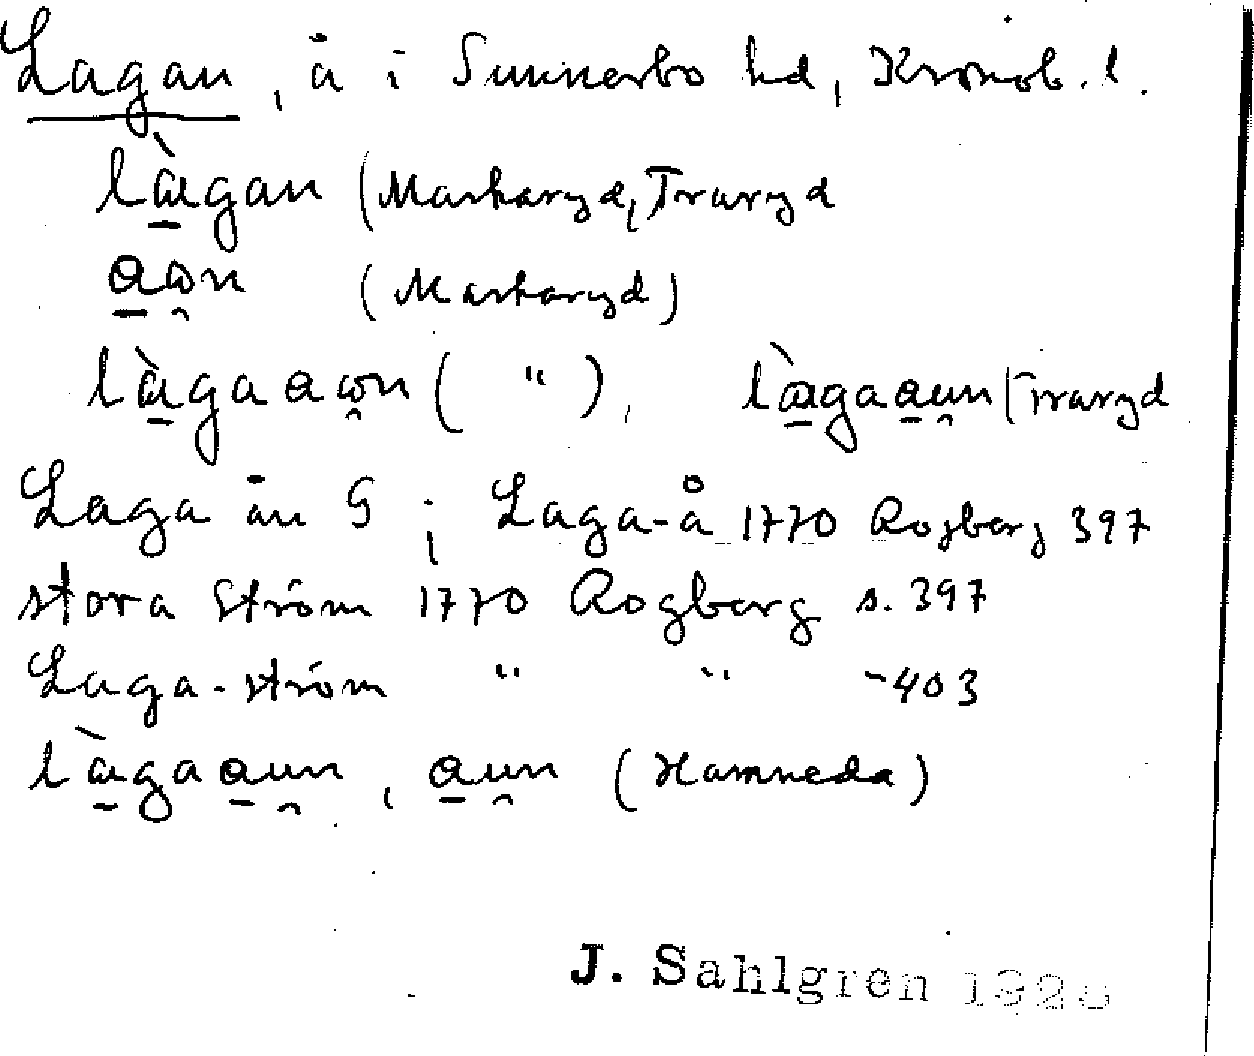 Lagan, å i Sunnerbo hd, Kronob. l.
làgan (Markaryd, Traryd
aωn (Markaryd)
làgaaωn ( " ), làgaaun (Traryd
Laga ån G ; Laga-å 1770 Rogberg 397
stora Ström 1770 Rogberg s. 397
Laga-ström " " -403
làgaaun, aun (Hamneda)
J. Sahlgren